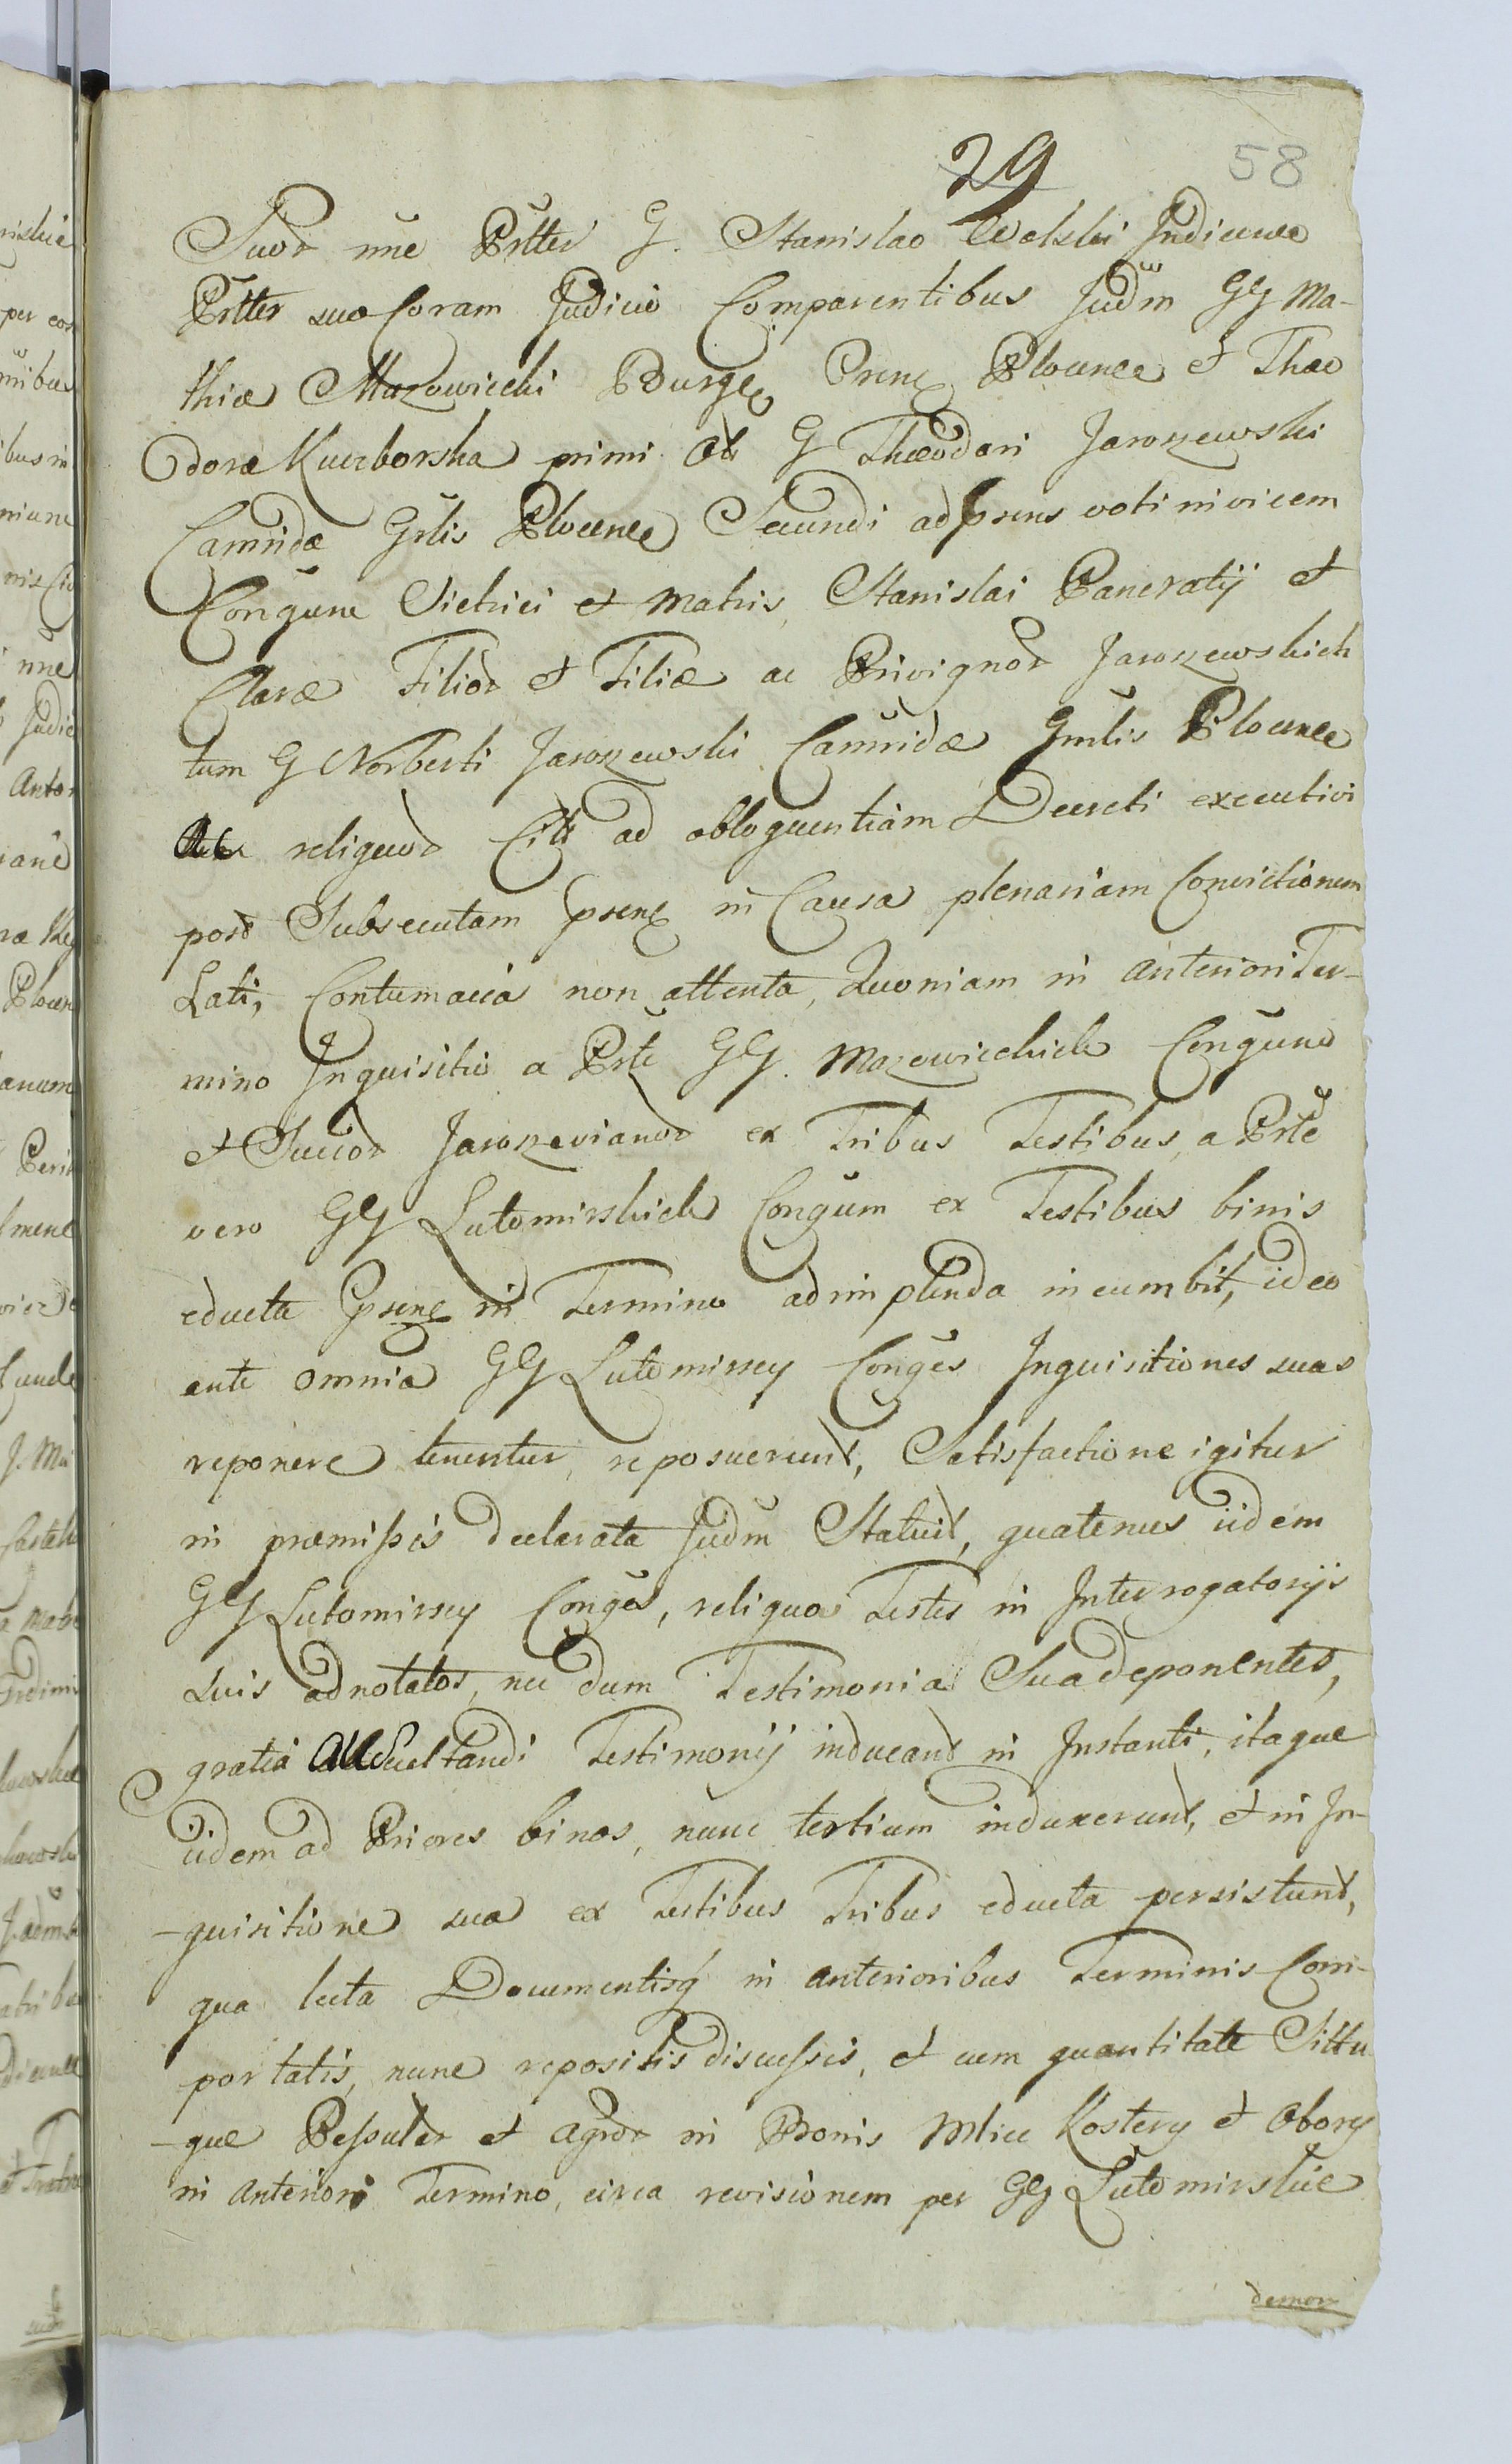 29
58
Suor nne Prtter G. Stanislao Wolski Judicii
Prtter suo Coram Judicio Comparentibus Judm GG Ma-
thiæ Mazowiecki Burge Prene Plocence et Theo
doræ Kuczborska primi Ab G Theodori Jaroszewski
Camridæ Grlis Plocence Secundi ad prsens voti invicem
Congum Victrici et Matris, Stanislai Pancratij et
Claræ Filior et Filiæ ac Privignor Jaroszewskich
tum G Norberti Jaroszewski Camnidæ Gnrlis Plocence
reliquor Citt ad obloquentiam Decreti executivi
post Subsecutam prsene in Causa plenariam Convictionem
Lati, Contumacia non attenta, Quoniam in anteriori Ter-
mino Inquisitio a Prte GG. Mazowieckich Congum
et Succor Jaroszevianor ex Tribus Testibus, a Prte
vero GG Lutomirskich Congum ex Testibus binis
educta prsene in Termino adimplenda incumbit, ideo
ante omnia GG Lutomirscy Conges Inquisitiones suas
reponere tenentur, reposuerunt, Satisfactione igitur
in præmissis declarata Judm Statuit, quatenus iidem
GG Lutomirscy Conges, reliquos Testes in Interrogatorijs
suis adnotatos, nec dum Testimonia Sua deponentes,
gratia auscultandi Testimonij inducant in Instanti, itaque
iidem ad Priores binos, nunc tertium induxerunt, et in In-
-quisitione sua ex Testibus Tribus educta persistunt,
qua lecta Documentisq in anterioribus Terminis Com-
portatis, nunc repositis discussis, et cum quantitate Sittu
-que Pessulor et Agror in Bonis Mlice Kostery et Obory
in Anteriori Termino, circa revisionem per GG Lutomirskie
demon